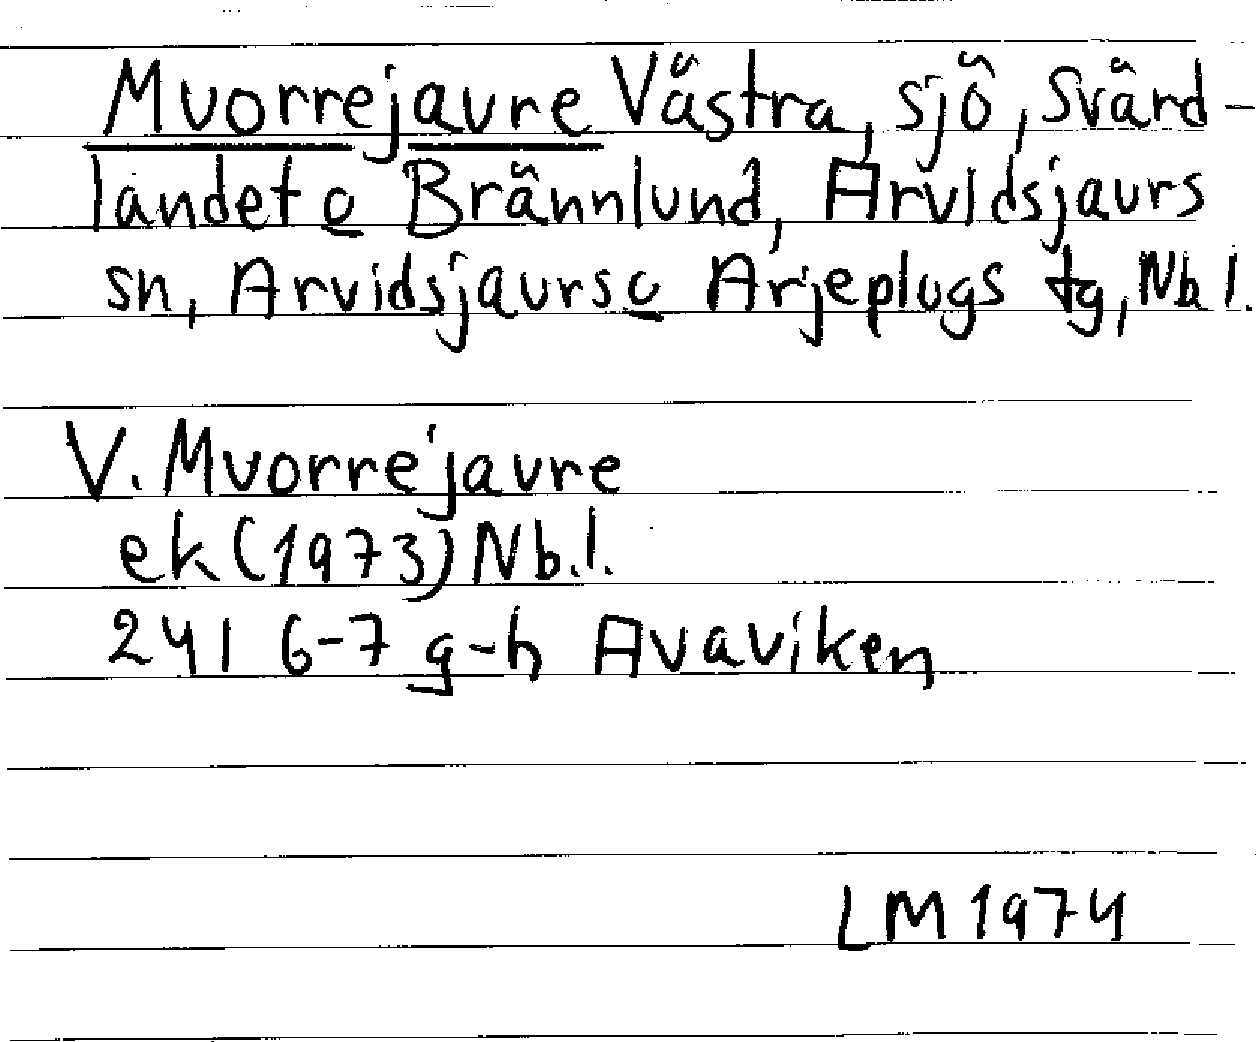 Muorrejaure Västra, sjö, Svärd-
landet o Brännlund, Arvidsjaurs
sn, Arvidsjaurs o Arjeplogs tg, Nb l.
V. Muorrejaure
ek (1973) Nb.l.
241 6-7 g-h Avaviken
LM 1974